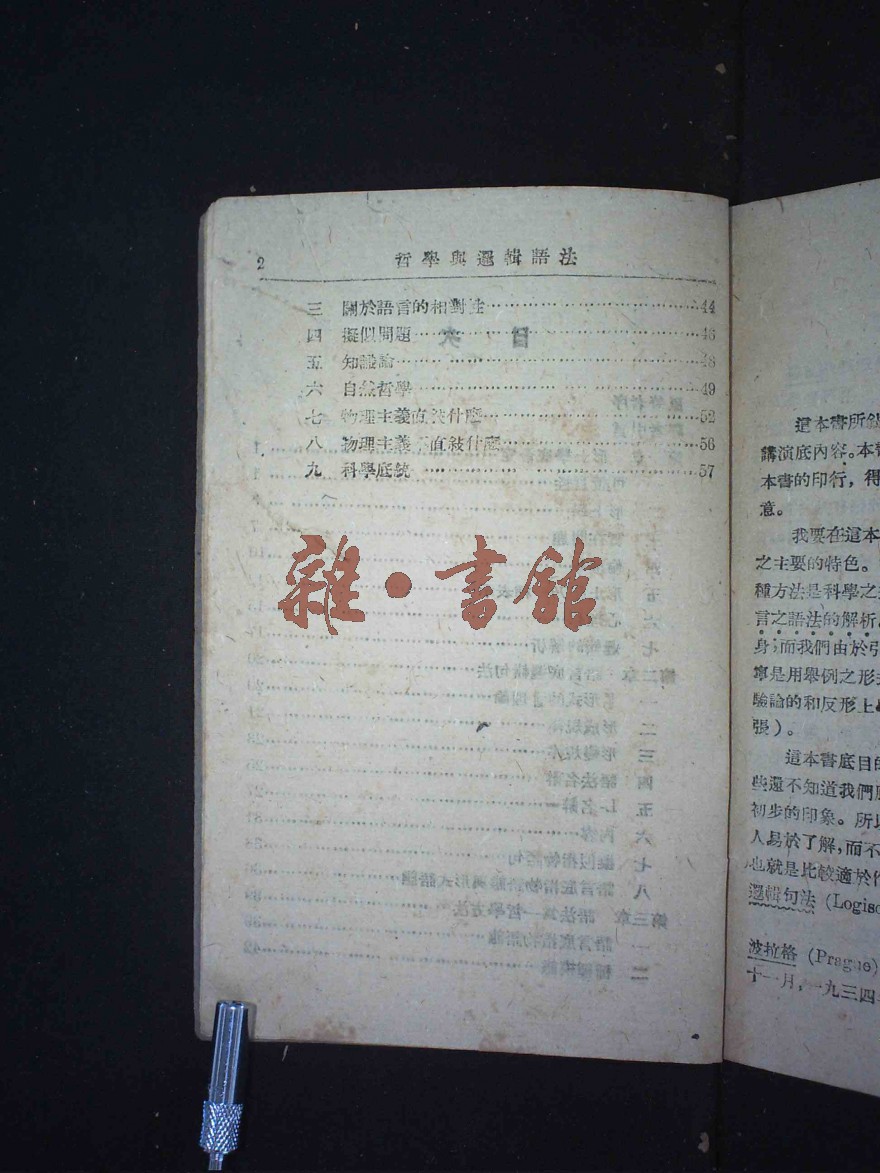 2
哲學與邏輯語法
三 關於語言的相對性……44
四 擬似問題……46
五 知識論……48
六 自然哲學……49
七 物理主義直敍什麽……52
八 物理主義不直敍什麽……56
九 科學底統……57
雜·書館
這本書所
講演底內容。本
本書的印行,得
意。
我要在這本
之主要的特色。
種方法是科學之
言之語法的解析
身;而我們由於引
寧是用舉例之形
驗論的和反形上
張)。
這本書底目
些還不知道我們
初步的印象。所以
人易於了解,而不
也就是比較適於
邏輯句法 (Logisc
波拉格 (Prague)
十一月,一九三四